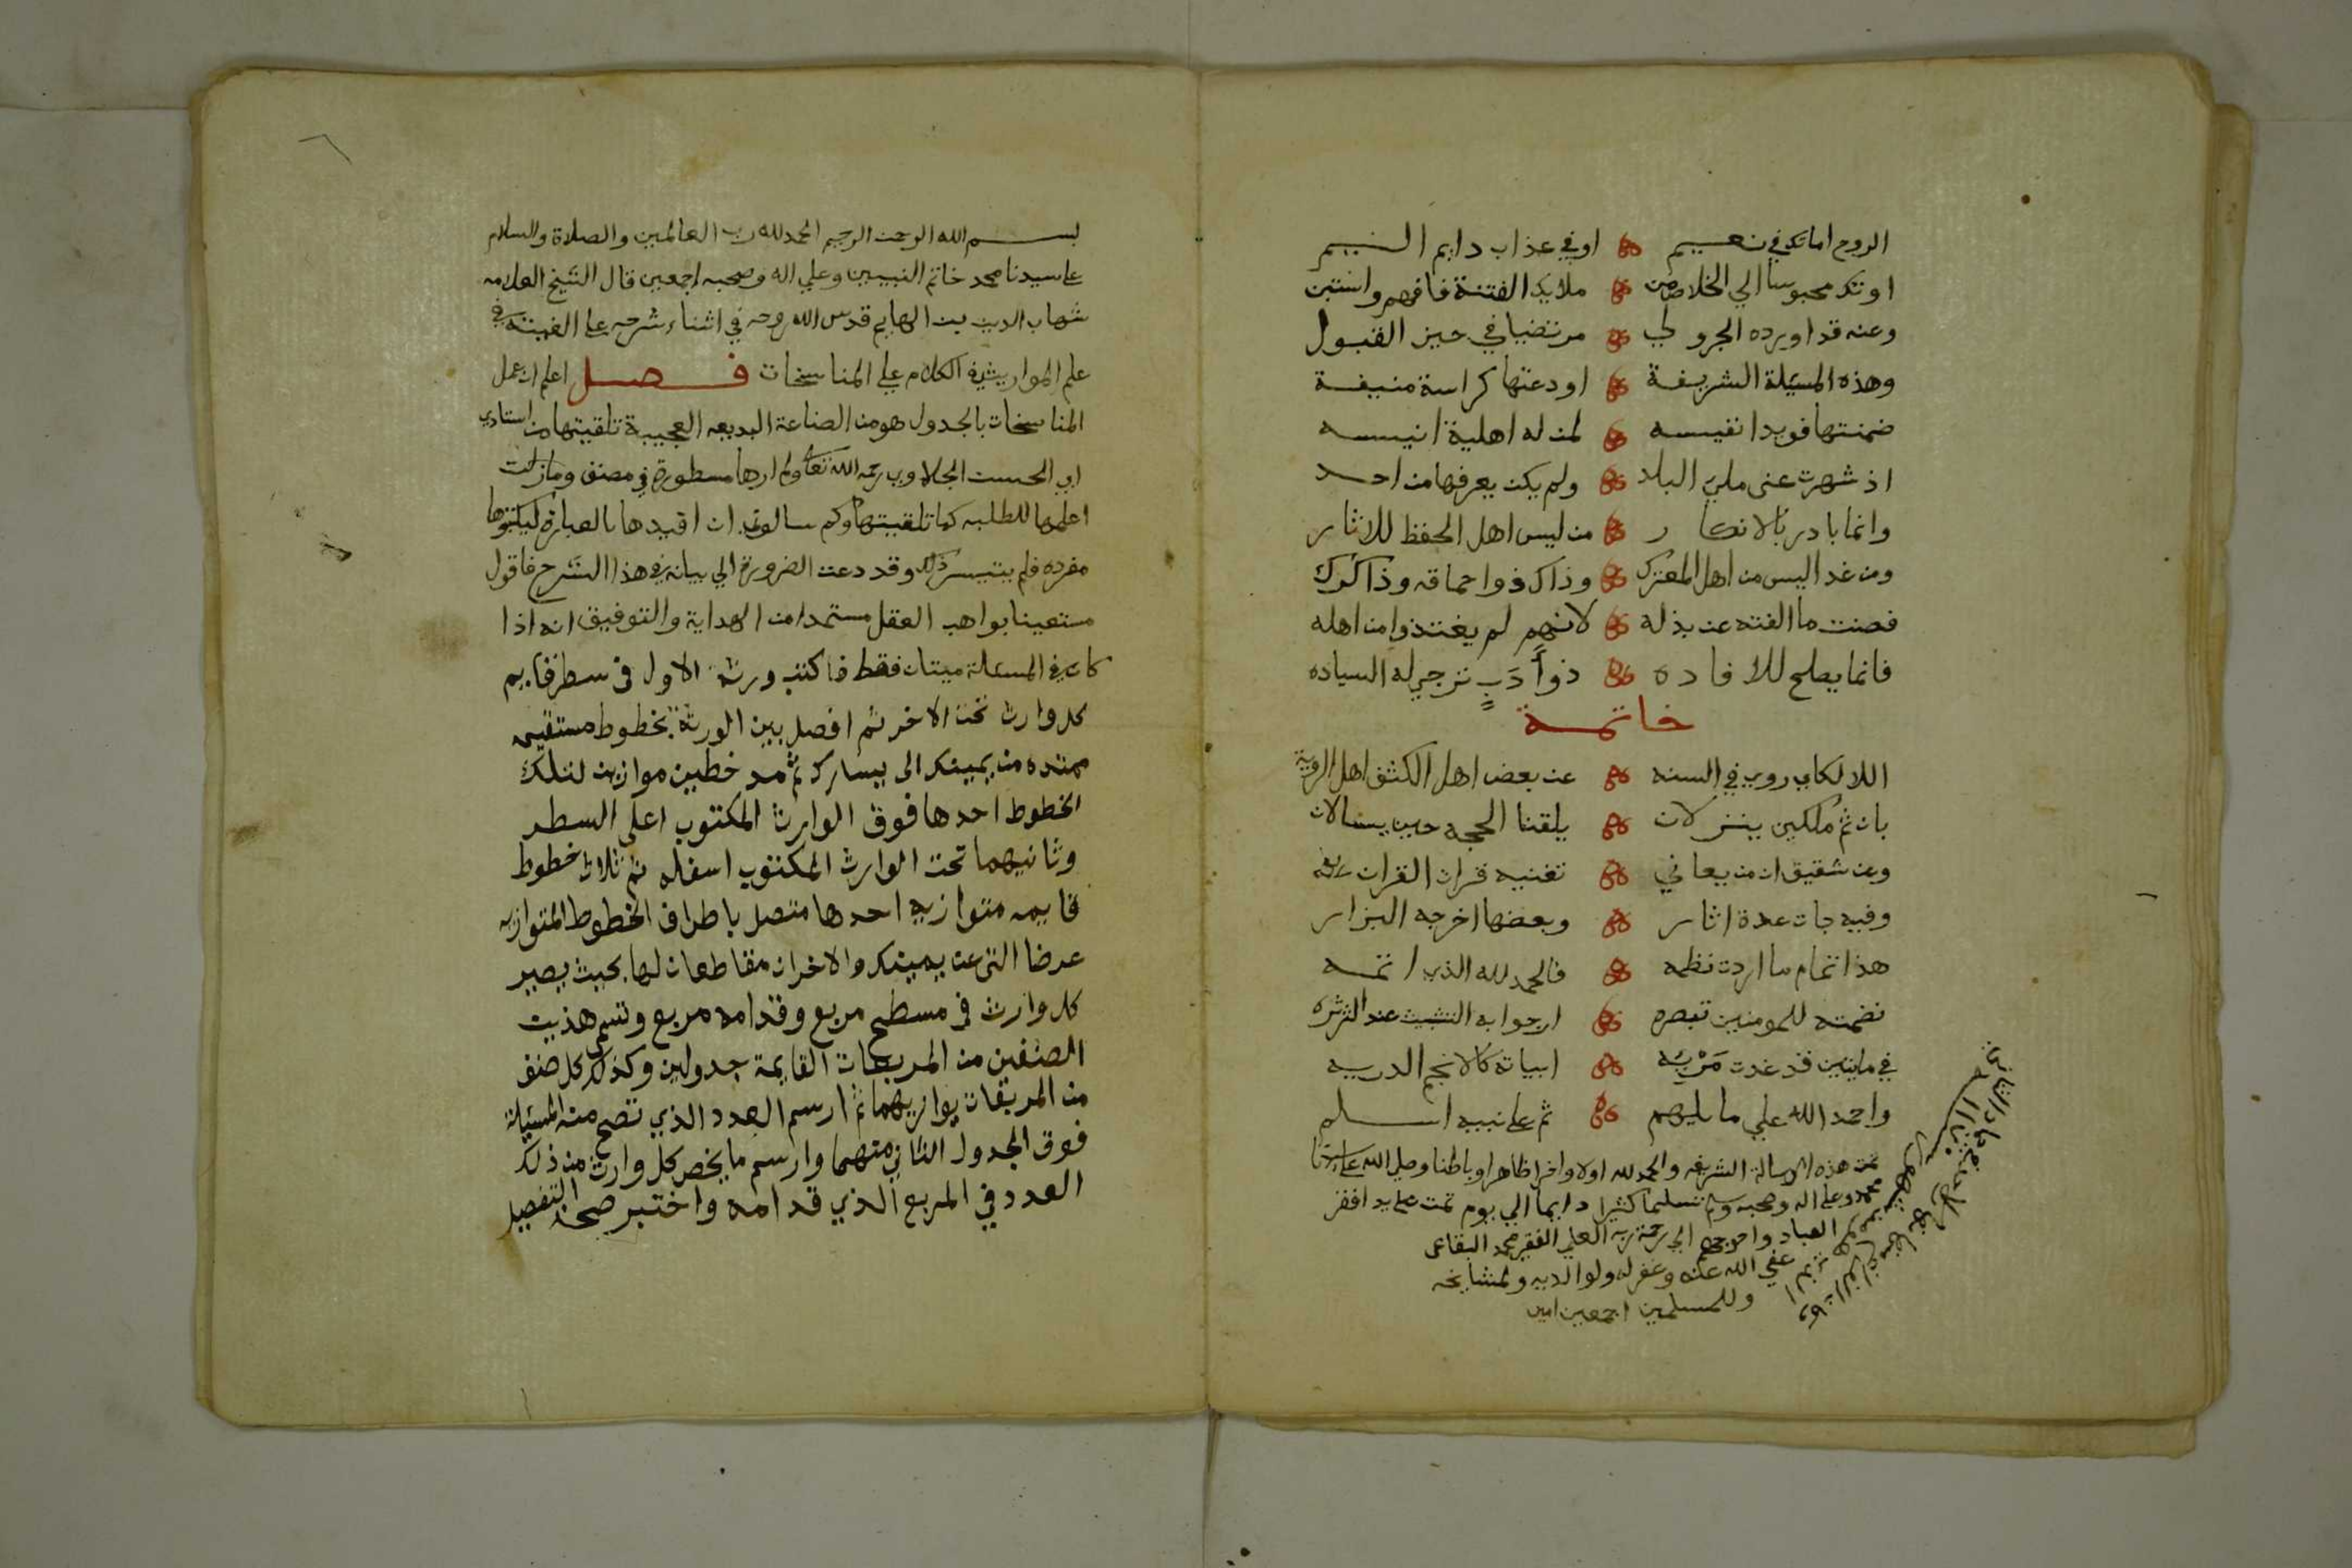 الروح اما تك في نعيم او في عذاب دايم
او تك محبوسا الي الخلاص من ملايك الفتنة فافهم واستبن
وعنه قد اورده الجزولي مرتضيا في حيز القبول
وهذه المسئلة الشريفة اودعتها كراسة منيفة
ضمنتها فويدا نفيسه لمن له اهلية انيسه
اذ شهرت عني ملي البلد ولم يكن يعرفها من احد
وانما بادر بالانكار من ليس اهل الحفظ للاثار
ومن غدا ليس من اهل المعترك وذاك ذو احماقه وذا كرك
فصنت ما الفته عن بذله لانهم لم يغتذوا من اهله
فانما يصلح للافاده ذو أدب ترجي له السياده
خاتمة
اللالكاي روي في السنه عن بعض اهل الكشف اهل
بان ثم ملكين ينزلان يلقنا الحجه حين يسالان
وعن شقيق ان من يعاني تغنيه قران القران
وفيه جات عدة اثار وبعضها اخرجه البزار
هذا تمام ما اردت نظمه فالحمد لله الذي اتمه
نضمته للمومنين تبصره ارجوا به التثبيت عند
في مايتين قد غدت مَرْئِيه ابياته كالانجم الدريه
واحمد الله علي ما يلهم ثم علي نبيه اسلم
تمت هذه الرسالة الشريفه والحمد لله اولا واخرا ظاهرا وباطنا وصلي الله علي سيدنا
محمد وعلي اله وصحبه وسلم تسليما كثيرا دايما الي يوم تمت علي يد افقر
العباد واحوجهم الي رحمة ربه العلي الفقير محمد البقاعي
عفي الله عنه وغفر له ولوالديه ولمشايخه
وللمسلمين اجمعين امين
بسم الله الرحمن الرحيم الحمد لله رب العالمين والصلاة والسلام
علي سيدنا محمد خاتم النبيين وعلي اله وصحبه اجمعين قال الشيخ العلامه
شهاب الدين بن الهايم قدس الله روحه في اثناء شرحه علي الفيته في
علم المواريث في الكلام علي المناسخات فصل اعلم ان عمل
المناسخات بالجدول هو من الصناعة البديعه العجيبة تلقيتها من استاذي
ابي الحسن الجلاوي رحمه الله تعالي ولم ارها مسطورة في مصنف ومازلت
اعلمها للطلبه كما تلقيتها وكم سالوني ان اقيدها بالعبارة ليكتبوها
مفرده فلم يتيسر ذلك وقد دعت الضرورة الي بيانه في هذا الشرح فاقول
مستعينا بواهب العقل مستمدا من الهداية والتوفيق انه اذا
كان في المسئلة ميتان فقط فاكتب ورثة الاول في سطر قايم
كل وارث تحت الاخر ثم افصل بين الورثة بخطوط مستقيمه
ممتده من يمينك الي يسارك ثم مد خطين موازين لتلك
الخطوط احدها فوق الوارث المكتوب اعلي السطر
وثانيهما تحت الوارث المكتوب اسفله ثم ثلاث خطوط
قايمه متوازيه احدها متصل باطراف الخطوط المتوازيه
عرضا التي عن يمينك والاخران مقاطعان لها بحيث يصير
كل وارث في مسطح مربع وقدامه مربع وتسمي هذين
الصنفين من المربعات القايمة جدولين وكذلك كل صنف
من المربعات يوازيهما ثم ارسم العدد الذي تصح منه المسئلة
فوق الجدول الثاني منهما وارسم ما يخص كل وارث من ذلك
العدد في المربع الذي قدامه واختبر صحة التفصيل